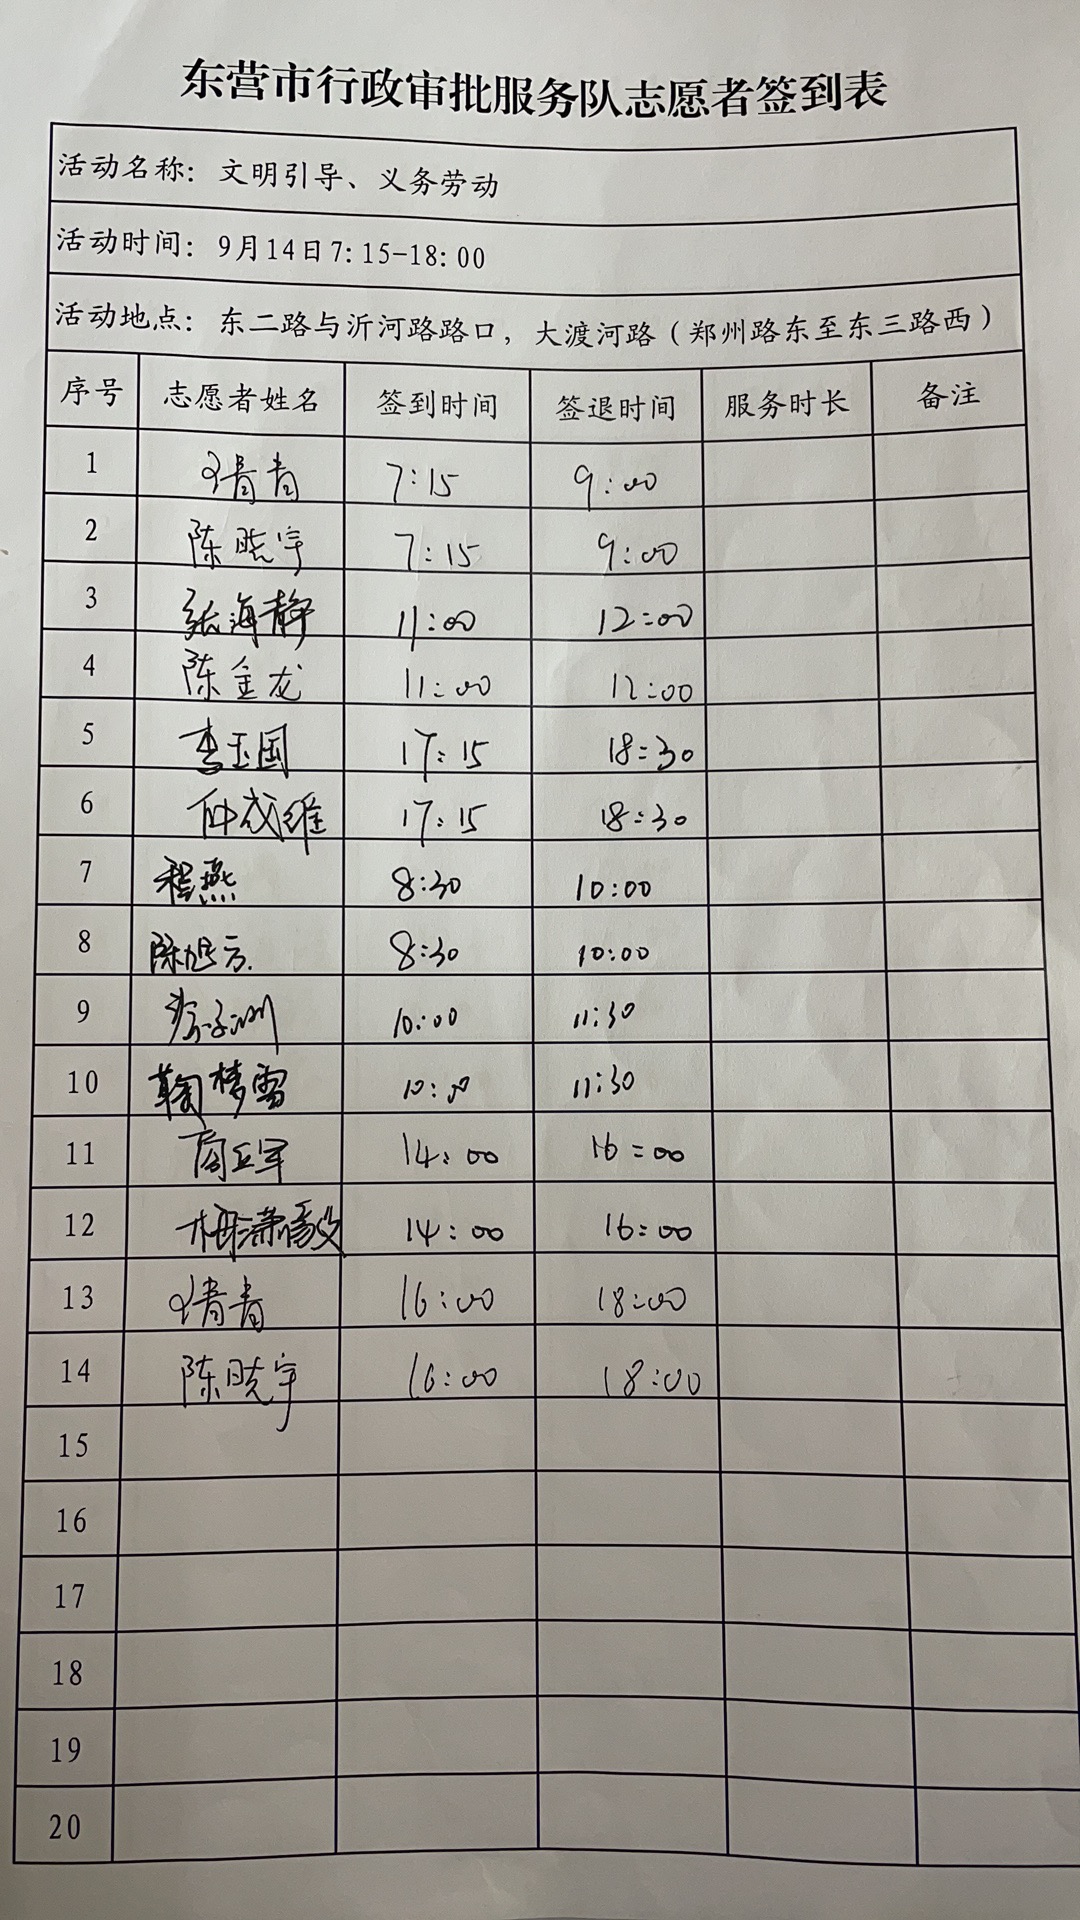 东营市行政审批服务队志愿者签到表
活动名称：文明引导、义务劳动
活动时间：9月14日7:15-18:00
活动地点：东二路与沂河路路口，大渡河路（郑州路东至东三路西）
序号 志愿者姓名 签到时间 签退时间 服务时长 备注
1 青 7:15 9:00
2 陈晓宇 7:15 9:00
3 张海静 11:00 12:00
4 陈金龙 11:00 12:00
5 李玉国 17:15 18:30
6 仲成维 17:15 18:30
7 程燕 8:30 10:00
8 陈旭方 8:30 10:00
9 10:00 11:30
10 鞠梦雪 10:00 11:30
11 14:00 16:00
12 14:00 16:00
13 青 16:00 18:00
14 陈晓宇 16:00 18:00
15
16
17
18
19
20